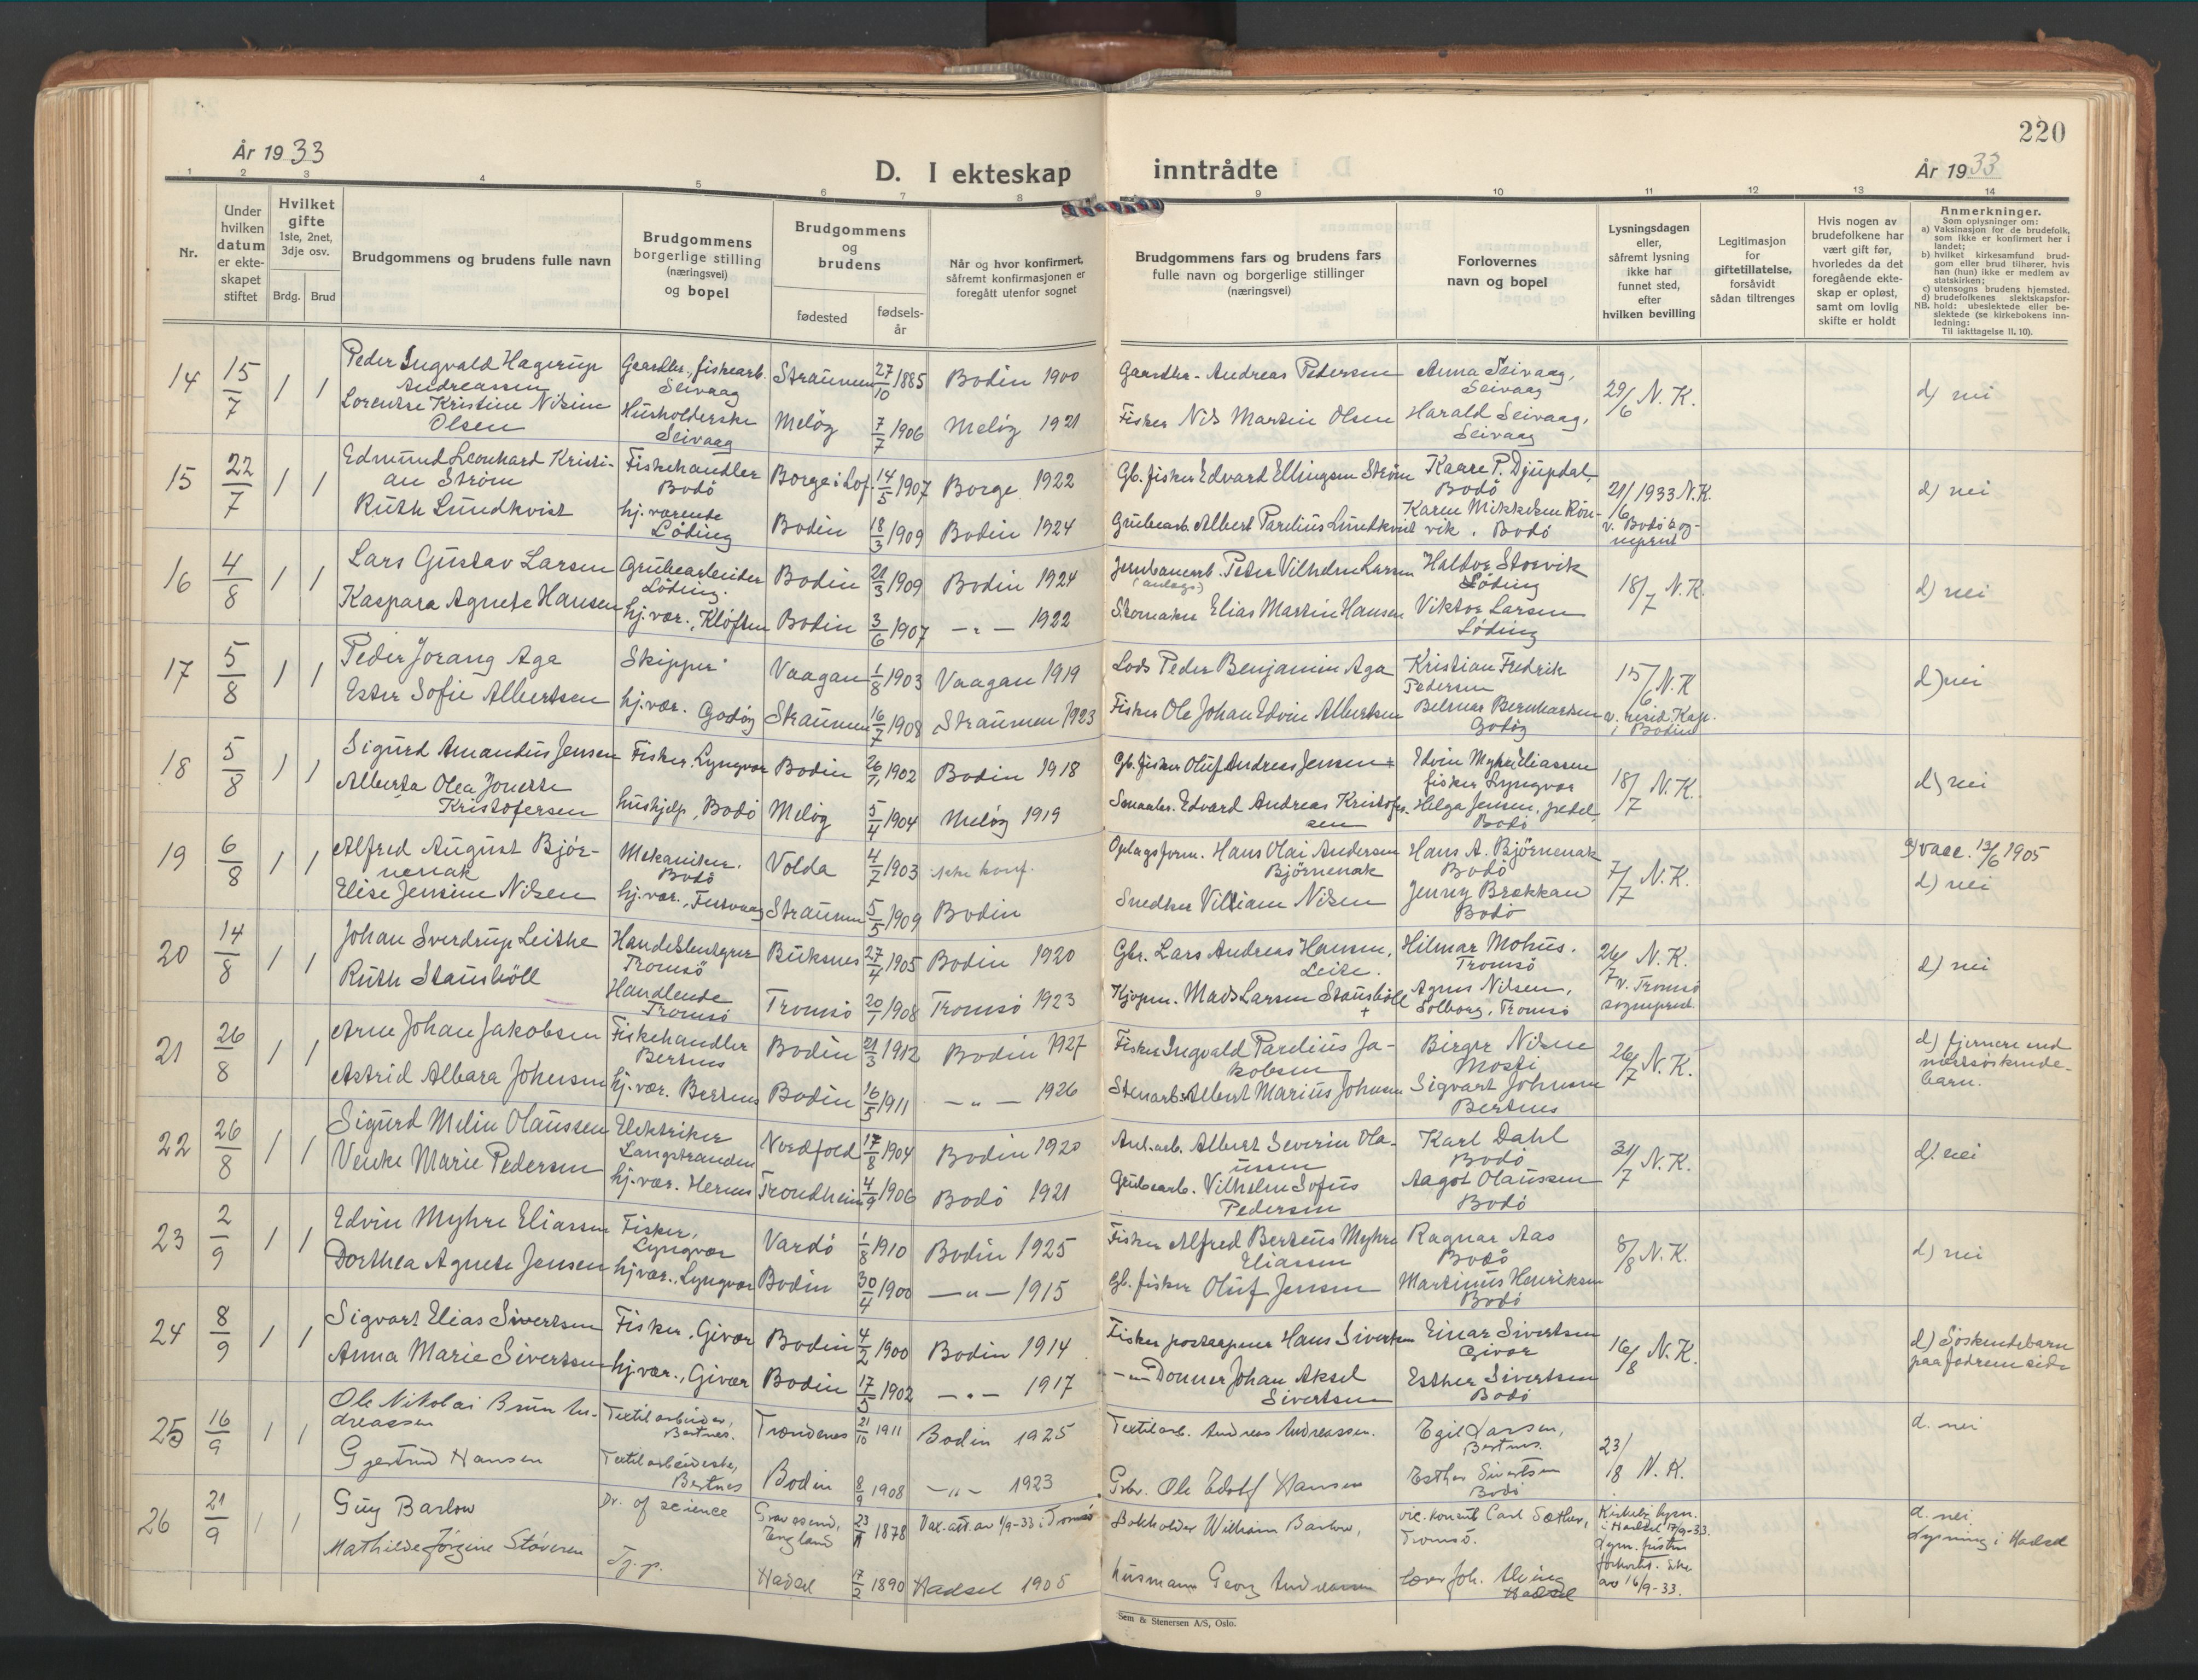 220
År 1933
D. I ekteskap inntrådte
År 1933
1 2 3 4 5 6 7 8 9 10 11 12 13 14
Nr.
Under hvilken datum er ekte-skapet stiftet
Hvilket gifte 1ste, 2net, 3dje osv.
Brdg. Brud
Brudgommens og brudens fulle navn
Brudgommens borgerlige stilling (næringsvei) og bopel
Brudgommens og brudens
fødested
fødsels-år
Når og hvor konfirmert, såfremt konfirmasjonen er foregått utenfor sognet
Brudgommens fars og brudens fars fulle navn og borgerlige stillinger (næringsvei)
Forlovernes navn og bopel
Lysningsdagen eller, såfremt lysning ikke har funnet sted, efter hvilken bevilling
Legitimasjon for giftetillatelse, forsåvidt sådan tiltrenges
Hvis nogen av brudefolkene har vært gift før, hvorledes da det foregående ekte-skap er opløst, samt om lovlig skifte er holdt
Anmerkninger.
Som oplysninger om:
a) Vaksinasjon for de brudefolk, som ikke er konfirmert her i landet;
b) hvilket kirkesamfund brud-gom eller brud tilhører, hvis han (hun) ikke er medlem av statskirken;
c) utensogns brudens hjemsted.
d) brudefolkenes slektskapsfor-
NB. hold: ubeslektede eller be-slektede (se kirkebokens inn-ledning:
Til iakttagelse II, 10).
14 15/7 1 1 Peder Ingvald Hagerup Andreassen Gaardbr., fiskearb. Seivaag Straumen 27/10 1885 Bodin 1900 Gaardbr. Andreas Pedersen Anna Seivaag, Seivaag 29/6 N.K. d) nei
Lorentze Kristine Nilsine Olsen Husholderske Seivaag Meløy 7/7 1906 Meløy 1921 Fisker Nils Martin Olsen Harald Seivaag, Seivaag
15 22/7 1 1 Edmund Leonhard Kristi-an Strøm Fiskehandler Bodö Borge i Lof. 14/5 1907 Borge 1922 Gb. fisker Edvard Ellingsen Strøm Kaare P. Djupdal, Bodö 21/6 1933 N.K. v. Bodö sogneprest d) nei
Ruth Lundkvist hj. værende Løding Bodin 18/3 1909 Bodin 1924 Grubearb. Albert Parelius Lundkvist Karen Mikkelsen Rön-vik. Bodö
16 4/8 1 1 Lars Gustav Larsen Grubearbeider Löding. Bodin 21/3 1909 Bodin 1924 Jernbanearb. (anlegs) Peter Vilhelm Larsen Haldor Storvik Löding 18/7 N.K. d) nei
Kaspara Agnete Hansen hj. vær., Kløften Bodin 3/6 1907 — " — 1922 Skomaker Elias Martin Hansen Viktor Larsen Löding
17 5/8 1 1 Peder Jorang Aga Skipper Vaagan 1/8 1903 Vaagan 1919 Lods Peder Benjamin Aga Kristian Fredrik Pedersen 15/6 N.K v. resid. Kap. i Bodin d) nei
Ester Sofie Albertsen hj. vær. Godøy Straumen 16/7 1908 Straumen 1923 Fisker Ole Johan Edvin Albertsen Bernhardsen Godøy
18 5/8 1 1 Sigurd Amandus Jensen Fisker. Lyngvær Bodin 26/1 1902 Bodin 1918 Gb. fisker Oluf Andreas Jensen + Edvin Myhre Eliassen fisker Lyngvær 18/7 N.K. d) nei
Alberta Olea Jonette Kristofersen hushjelp, Bodö Meløy 5/4 1904 Meløy 1919 Edvard Andreas Kristofer-sen Helga Jensen, Bodö
19 6/8 1 1 Alfred August Bjør-nenak Mekaniker. Bodö Volda 4/7 1903 ikke konf. Oplagsform. Hans Olai Andersen Bjørnenak Hans A. Björnenak Bodö 7/7 N.K. a) vacc. 12/6 1905 d) nei
Elise Jensine Nilsen hj. vær., Straumen 5/5 1909 Bodin Snedker Villiam Nilsen Jenny Brækkan Bodö
20 14/8 1 1 Johan Sverdrup Leithe Tromsö Buksnes 27/4 1905 Bodin 1920 Gbr. Lars Andreas Hansen Leite. Hilmar Mohus. Tromsö 26/7 N.K. v. Tromsö sogneprest. d) nei
Ruth Stausholl Handlende Tromsö Tromsö 20/1 1908 Tromsö 1923 Kjøpm. Mads Larsen Stausholl + Agnes Nilsen, Solborg. Tromsö
21 26/8 1 1 Arne Johan Jakobsen Fiskehandler Bertnes Bodin 21/3 1912 Bodin 1927 Fisker Ingvald Parelius Ja-kobsen Birger Nilsen Mosti 26/7 N.K. d) fjernere end næstsøskende-barn.
Astrid Albara Johnsen hj. vær. Bertnes Bodin 16/5 1911 — " — 1926 Stenarb. Albert Marius Johnsen Sigvart Johnsen Bertnes
22 26/8 1 1 Sigurd Melin Olaussen Elektriker Langstranden Nordfold 17/8 1904 Bodin 1920 Anl. arb. Albert Severin Ola-ussen Karl Dahl Bodö 31/7 N.K. d) nei
Venke Marie Pedersen hj. vær. Hernes Trondheim 4/9 1906 Bodö 1921 Grubearb. Vilhelm Sofus Pedersen Aagot Olaussen Bodö
23 2/9 1 1 Edvin Myhre Eliassen Fisker, Lyngvær Vardö 1/8 1910 Bodin 1925 Fisker Alfred Berteus Myhre Eliassen Ragnar Aas Bodö 8/8 N.K. d) nei
Dorthea Agnete Jensen hj vær., Lyngvær Bodin 30/4 1900 — " — 1915 Gb. fisker Oluf Jensen Martinus Henriksen Bodö
24 8/9 1 1 Sigvart Elias Sivertsen Fisker, Givær Bodin 4/2 1900 Bodin 1914 Fisker postaapner Hans Sivertsen Einar Sivertsen Givær 16/8 N.K. d) Söskendebarn paa fædrene side
Anna Marie Sivertsen hj. vær., Givær Bodin 17/5 1902 — " — 1917 — " — Donner Johan Aksel Sivertsen Esther Sivertsen Bodö
25 16/9 1 1 Ole Nikolai Brun An-dreassen Textilarbeider, Bertnes. Trondenes 21/10 1911 Bodin 1925 Textilarb. Andreas Andreassen. Egil Larsen, Bertnes. 23/8 N.K. d. nei
Gjertrud Hansen Textilarbeiderske, Bertnes Bodin 8/9 1908 — " — 1923 Gbr. Ole Edolf Hansen Esther Sivertsen Bodö
26 21/9 1 1 Guy Barlow Dr. of science Gravesend, England 23/ 1878 Vac. att. av 1/9-33 i Tromsö Bokholder William Barlow, vic. konsul Carl Sæther, Tromsö. Kirkelig lysn. i Hadsel 17/9-33. Lysn. fristen forkortet. av 16/9-33. d. nei. Lysning i Hadsel
Mathilde Jørgine Støveren Tj. p. Hadsel 17/2 1890 Hadsel 1905 Husmann Georg Andreassen Lærer Joh. Hadsel
Sem & Stenersen A/S, Oslo.